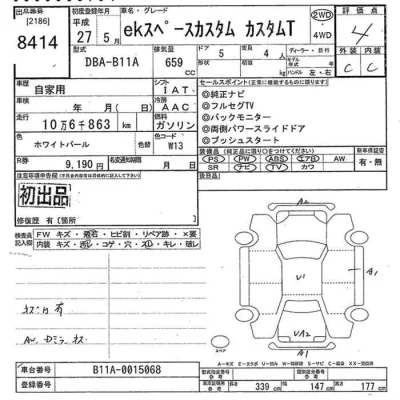 出品番号 [2186] 8414
初度登録年月 平成 27年 5月
車名・グレード ekスペースカスタム カスタムT
2WD・4WD
評価点 4
型式 DBA-B11A
排気量 659 cc
ドア 5
定員 4人
ディーラー・並行
ハンドル 左・右
外装 C
内装 C
車歴 自家用
シフト IAT
車検 年 月( 日)
冷房 AAC
走行 10万6千863 km
燃料 ガソリン
色 ホワイトパール
色替
色コード W13
R券 9,190円
名変通知期限 月 日
セールスポイント
◎純正ナビ
◎フルセグTV
◎バックモニター
◎両側パワースライドドア
◎プッシュスタート
PS PW ABS エアB AW
SR ナビ TV カワ
有・無
初出品
修復歴 有(箇所 )
検査員記入欄
FW キズ・飛石・ヒビ割・リペア跡・×要
内装 キズ・汚レ・コゲ・穴・スレ・キレ・破レ
キズ凹有
A2
U1
A1
UA2
A1
車台番号 B11A-0015068
登録番号
長さ 339 cm
幅 147 cm
高さ 177 cm